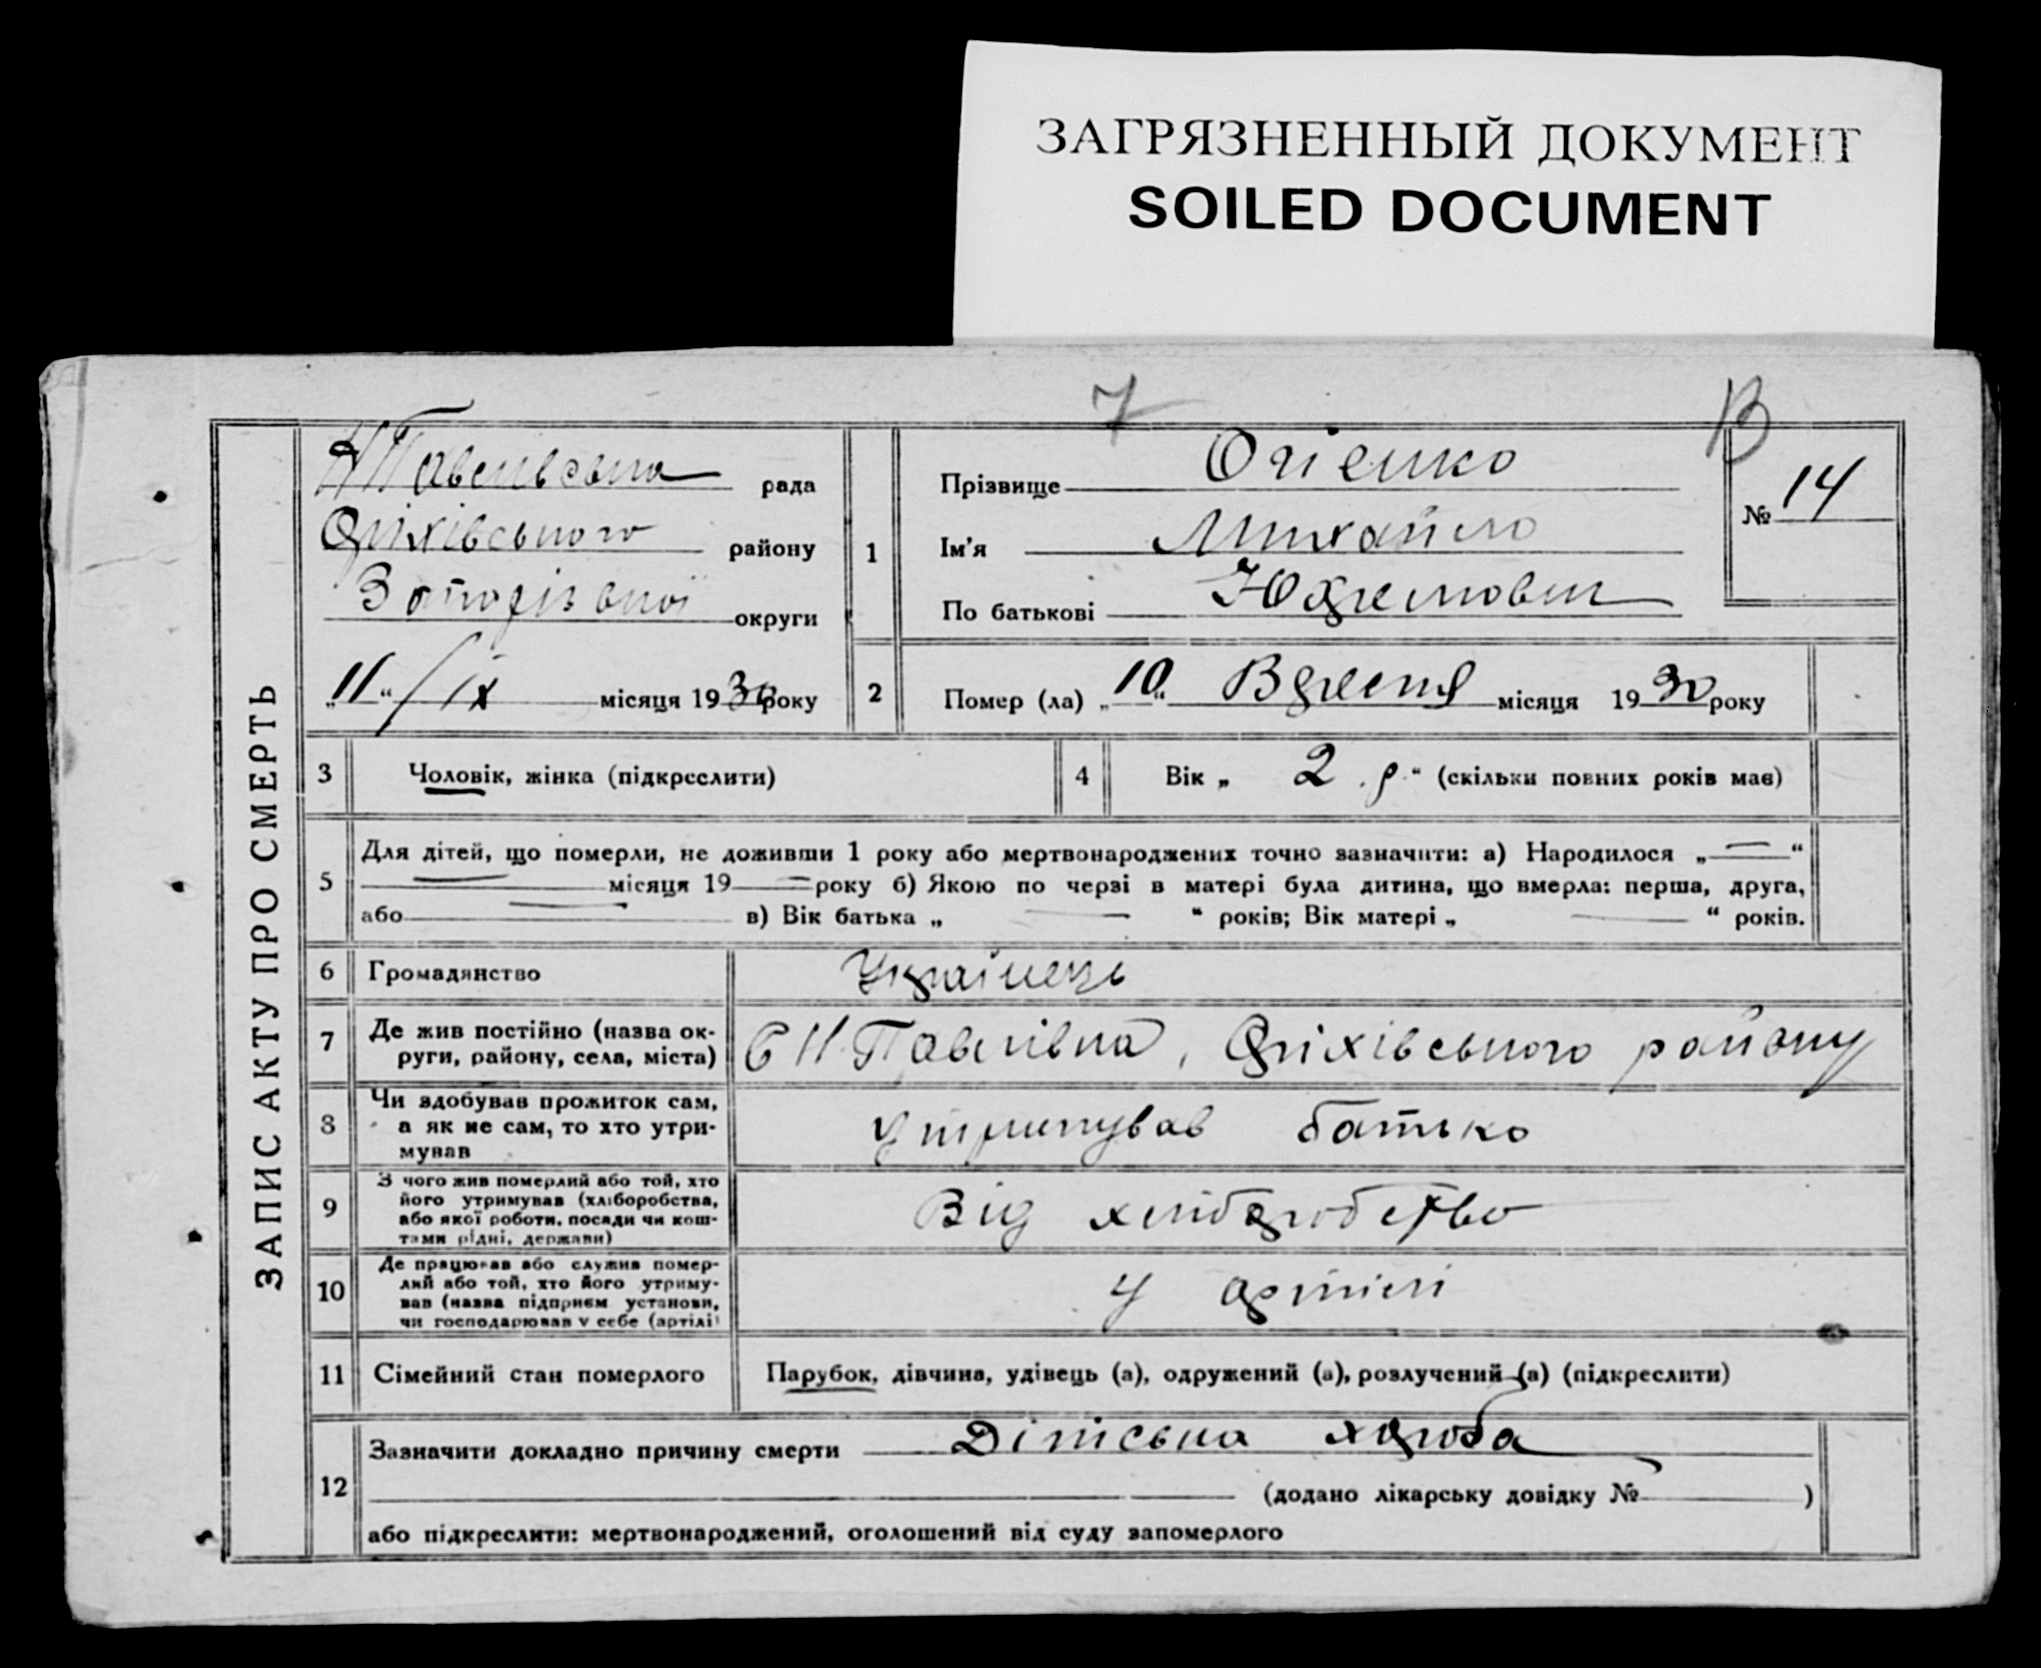 ЗАГРЯЗНЕННЫЙ ДОКУМЕНТ
SOILED DOCUMENT
7
В
ЗАПИС АКТУ ПРО СМЕРТЬ
Н Павлівська рада
Оріхівського району
Запорізької округи
„11“ / ІХ місяця 1930 року
1
Прізвище Огієнко
Ім'я Михайло
По батькові
№ 14
2
Помер (ла) „10“ Вересня місяця 1930 року
3
Чоловік, жінка (підкреслити)
4
Вік „ 2 р. “ (скільки повних років має)
5
Для дітей, що померли, не доживши 1 року або мертвонароджених точно зазначити: а) Народилося „ — “
— місяця 19 — року б) Якою по черзі в матері була дитина, що вмерла: перша, друга,
або — в) Вік батька „ — “ років; Вік матері „ — “ років.
6
Громадянство
Українець
7
Де жив постійно (назва ок-
руги, району, села, міста)
С Н. Павлівка, Оріхівського району
8
Чи здобував прожиток сам,
а як не сам, то хто утри-
мував
утримував батько
9
З чого жив померлий або той, хто
його утримував (хліборобства,
або якої роботи, посади чи кош-
тами рідні, держави)
Від хліборобство
10
Де працював або служив помер-
лий або той, хто його утриму-
вав (назва підприєм установи,
чи господарював у себе (артілі)
У артілі
11
Сімейний стан померлого
Парубок, дівчина, удівець (а), одружений (а), розлучений (а) (підкреслити)
12
Зазначити докладно причину смерти Дітська хороба
(додано лікарську довідку № )
або підкреслити: мертвонароджений, оголошений від суду запомерлого